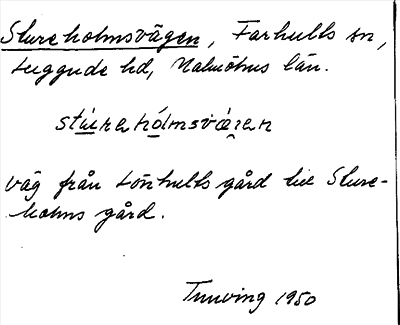 Stureholmsvägen, Farhults sn,
Luggude hd, Malmöhus län.
stúrehólmsvä́gen
Väg från Lönhults gård till Sture-
holms gård.
Tunving 1950